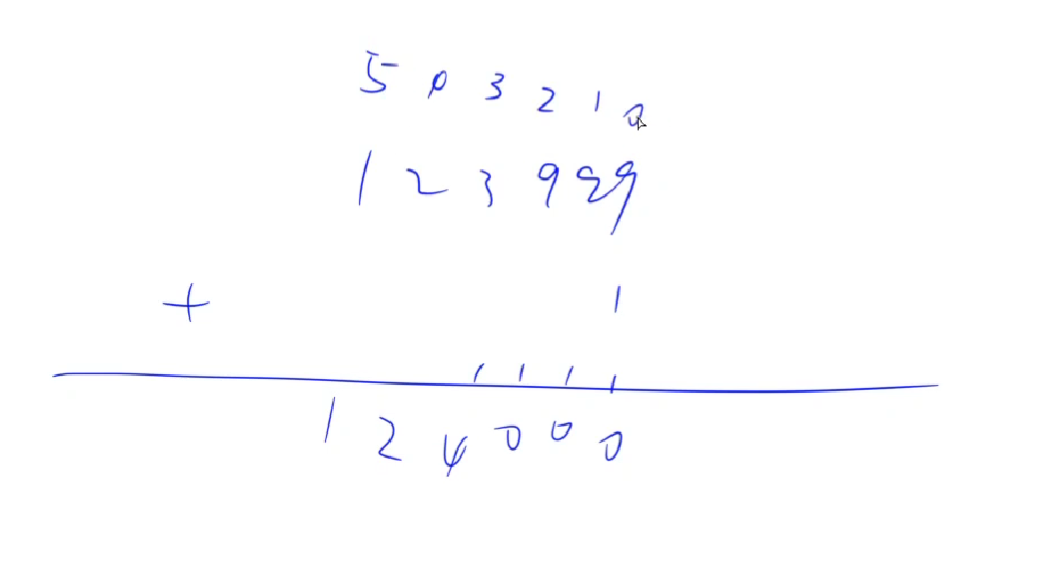 5 0 3 2 1 0
1 2 3 9 9 9
+ 1
1 1 1 1
1 2 4 0 0 0